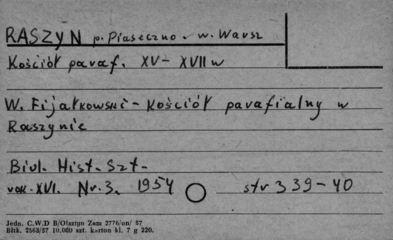 RASZYN p. Piaseczno. w. Warsz
Kościół paraf. XV - XVII w
W. Fijałkowski - Kościół parafialny w
Raszynie
Biul. Hist. Szt.
rok. XVI. Nr. 3. 1954 str 339-40
Jedn. C.W.D B/Olsztyn Zam 2776/on/ 57
Bltk. 2563/57 10.000 szt. karton kl. 7 g 220.